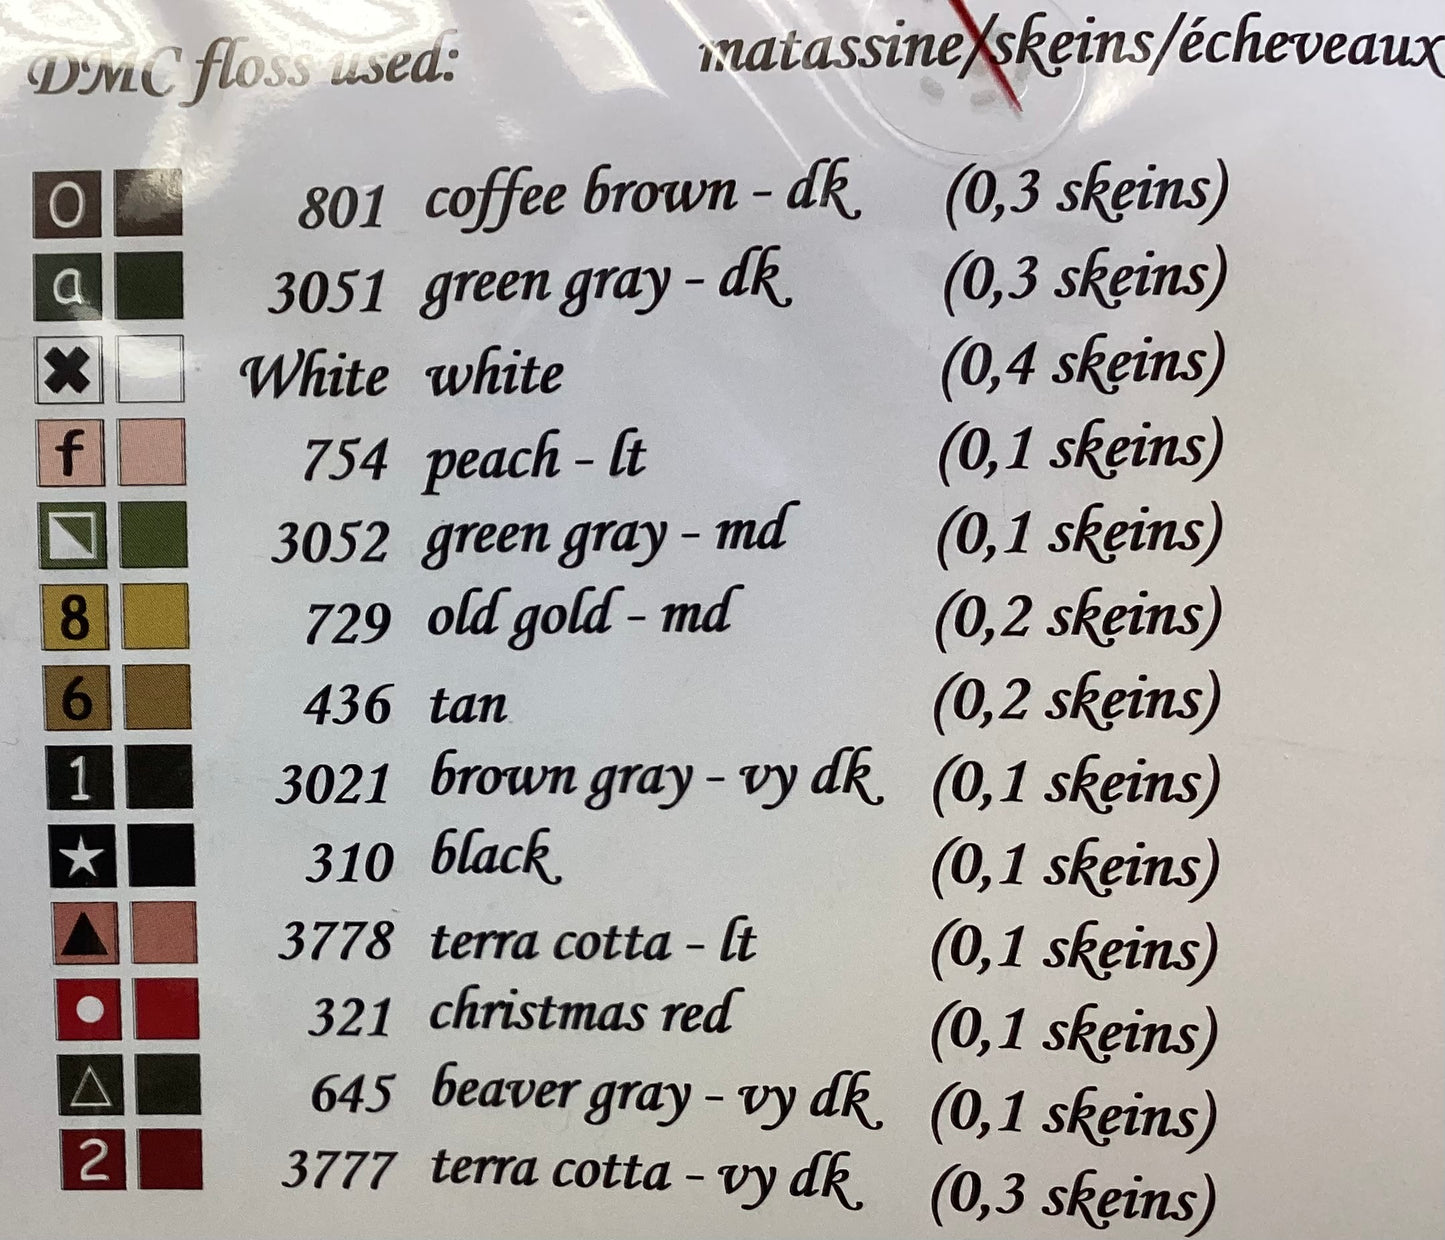 DMC floss used: matassine/skeins/écheveaux
O 801 coffee brown - dk (0,3 skeins)
a 3051 green gray - dk (0,3 skeins)
✖ White white (0,4 skeins)
f 754 peach - lt (0,1 skeins)
3052 green gray - md (0,1 skeins)
8 729 old gold - md (0,2 skeins)
6 436 tan (0,2 skeins)
1 3021 brown gray - vy dk (0,1 skeins)
★ 310 black (0,1 skeins)
▲ 3778 terra cotta - lt (0,1 skeins)
● 321 christmas red (0,1 skeins)
△ 645 beaver gray - vy dk (0,1 skeins)
2 3777 terra cotta - vy dk (0,3 skeins)